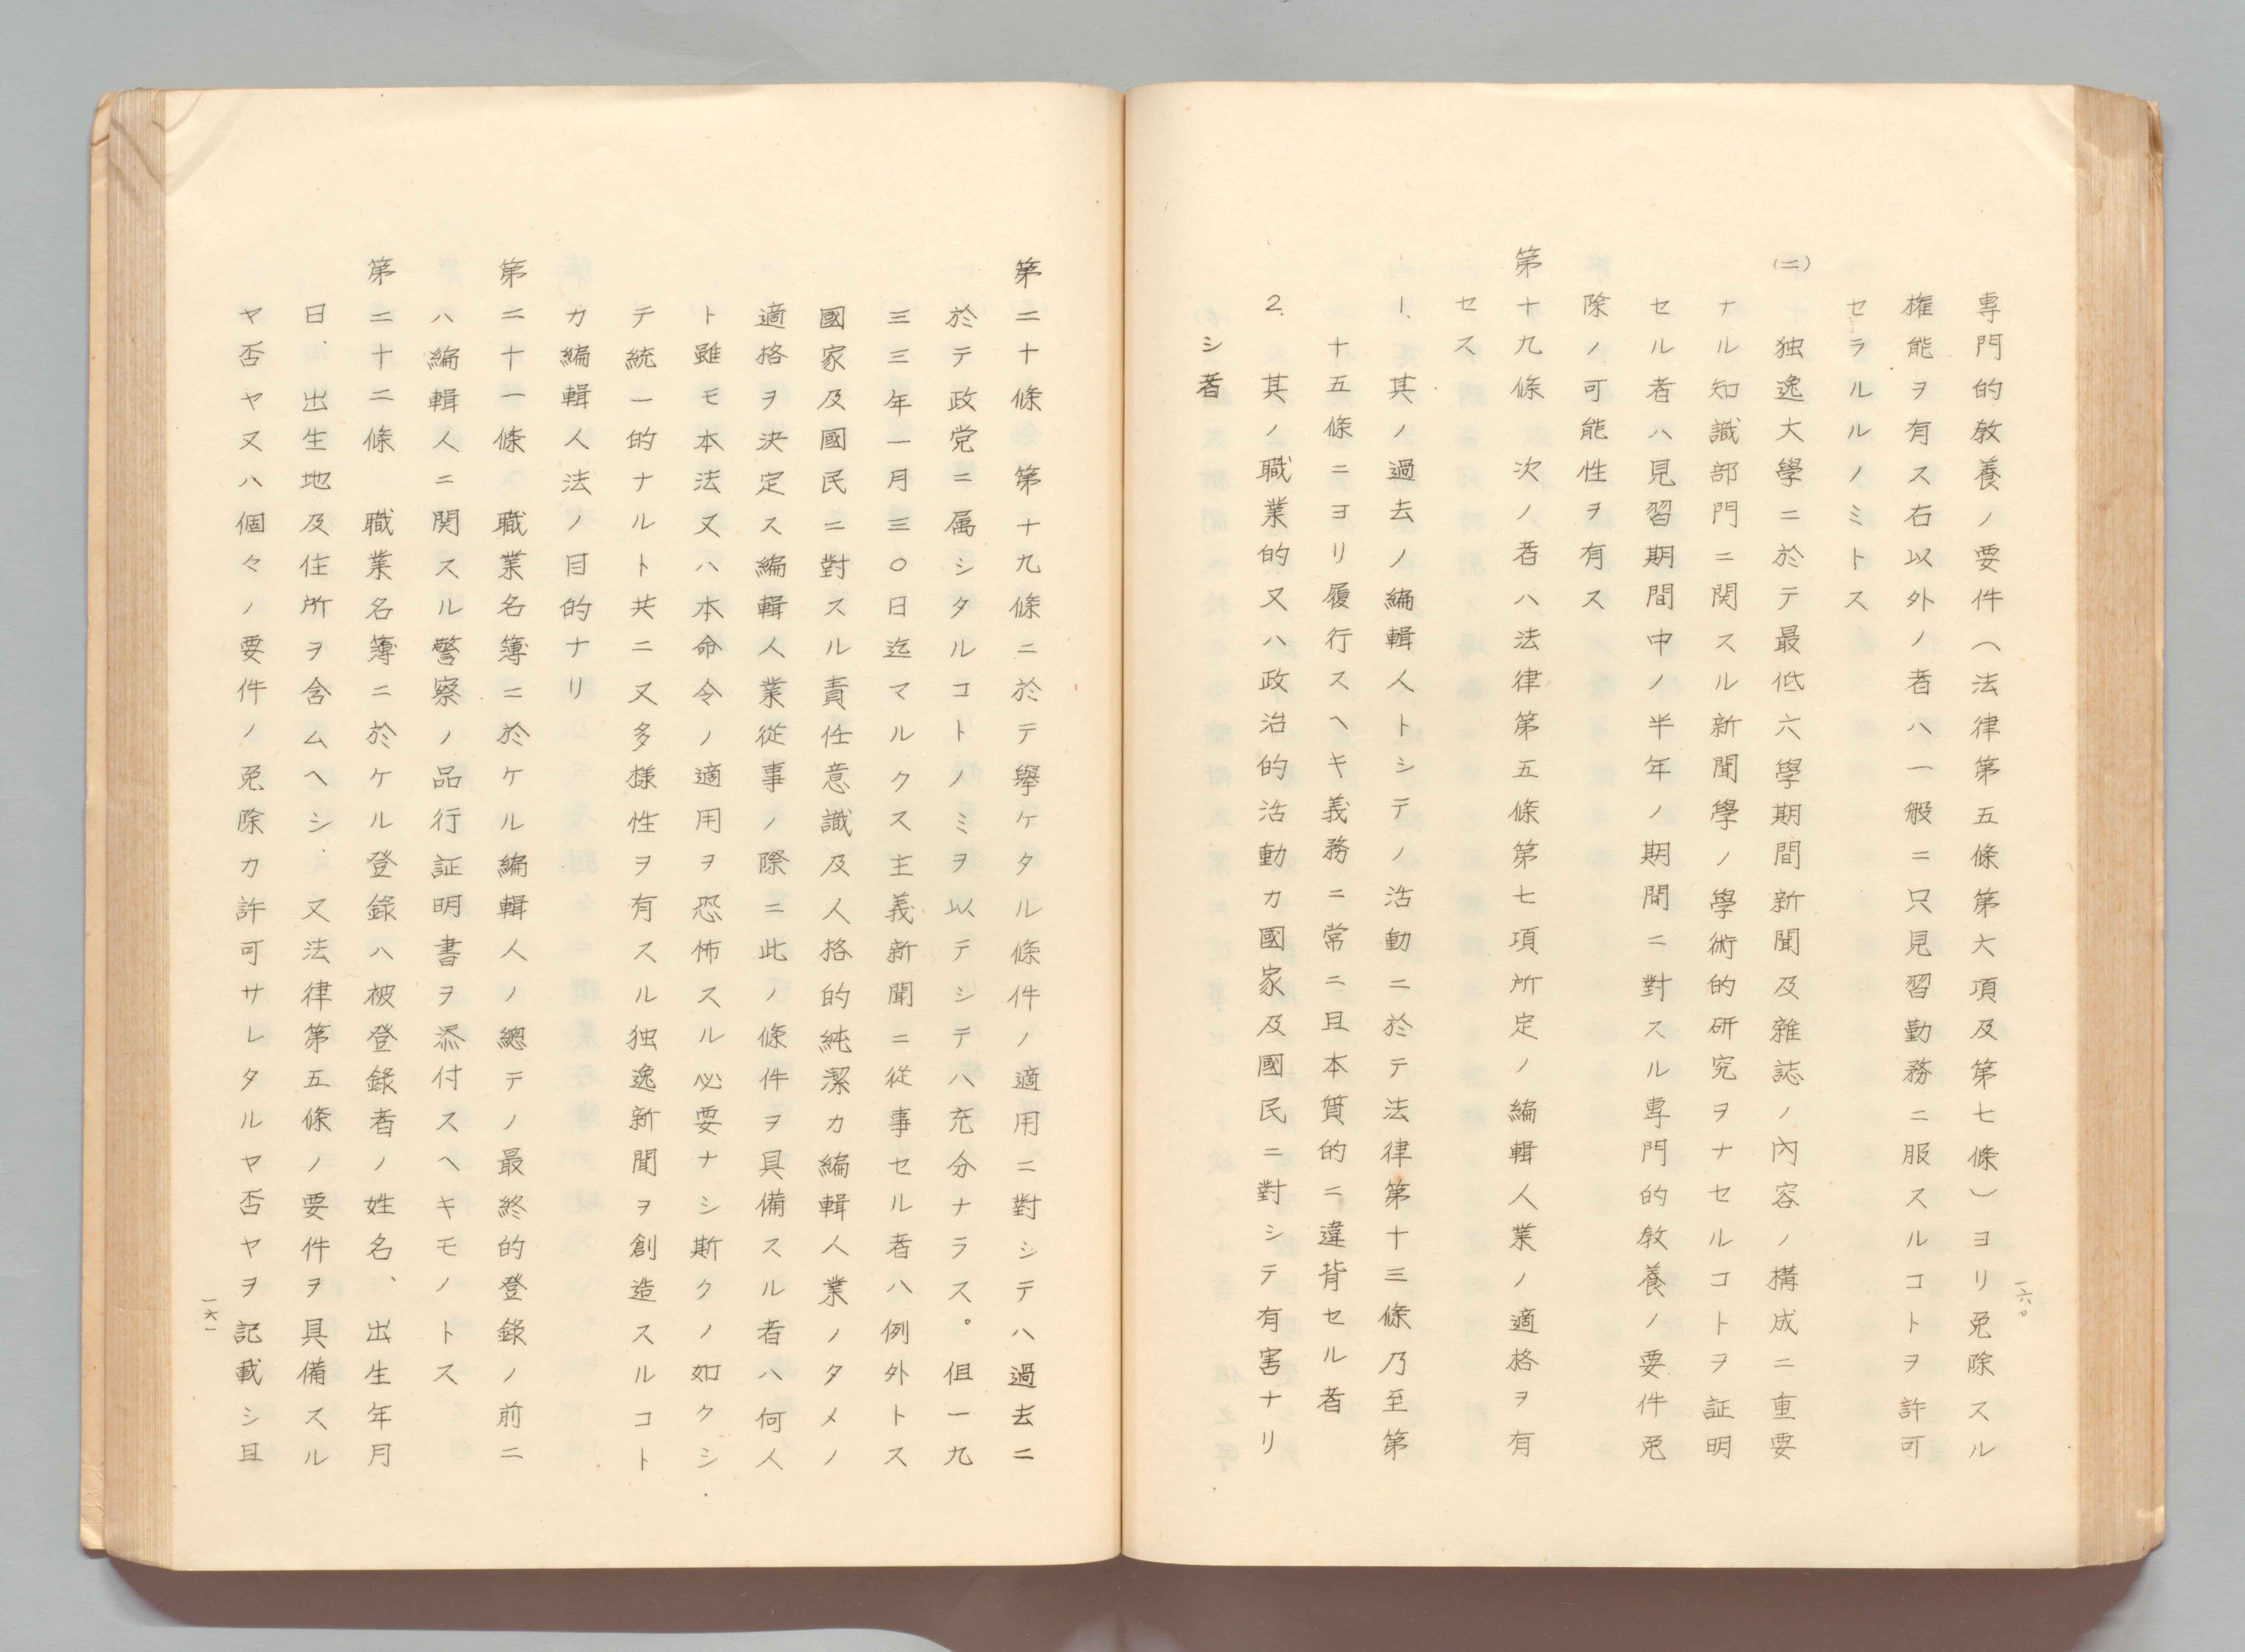 専門的教養ノ要件（法律第五條第六項及第七條）ヨリ免除スル
権能ヲ有ス右以外ノ者ハ一般ニ只見習勤務ニ服スルコトヲ許可
セラルルノミトス
(二)　独逸大學ニ於テ最低六學期間新聞及雜誌ノ内容ノ構成ニ重要
ナル知識部門ニ関スル新聞學ノ學術的研究ヲナセルコトヲ証明
セル者ハ見習期間中ノ半年ノ期間ニ對スル専門的教養ノ要件免
除ノ可能性ヲ有ス
第十九條　次ノ者ハ法律第五條第七項所定ノ編輯人業ノ適格ヲ有
セス
1.　其ノ過去ノ編輯人トシテノ活動ニ於テ法律第十三條乃至第
十五條ニヨリ履行スヘキ義務ニ常ニ且本質的ニ違背セル者
2.　其ノ職業的又ハ政治的活動カ國家及國民ニ對シテ有害ナリ
シ者
一六〇
第二十條　第十九條ニ於テ擧ケタル條件ノ適用ニ對シテハ過去ニ
於テ政党ニ属シタルコトノミヲ以テシテハ充分ナラス。但一九
三三年一月三〇日迄マルクス主義新聞ニ従事セル者ハ例外トス
國家及國民ニ對スル責任意識及人格的純潔カ編輯人業ノタメノ
適格ヲ決定ス編輯人業従事ノ際ニ此ノ條件ヲ具備スル者ハ何人
ト雖モ本法又ハ本命令ノ適用ヲ恐怖スル必要ナシ斯クノ如クシ
テ統一的ナルト共ニ又多様性ヲ有スル独逸新聞ヲ創造スルコト
カ編輯人法ノ目的ナリ
第二十一條　職業名簿ニ於ケル編輯人ノ總テノ最終的登録ノ前ニ
ハ編輯人ニ関スル警察ノ品行証明書ヲ添付スヘキモノトス
第二十二條　職業名簿ニ於ケル登録ハ被登録者ノ姓名、出生年月
日、出生地及住所ヲ含ムヘシ、又法律第五條ノ要件ヲ具備スル
ヤ否ヤ又ハ個々ノ要件ノ免除カ許可サレタルヤ否ヤヲ記載シ且
一六一